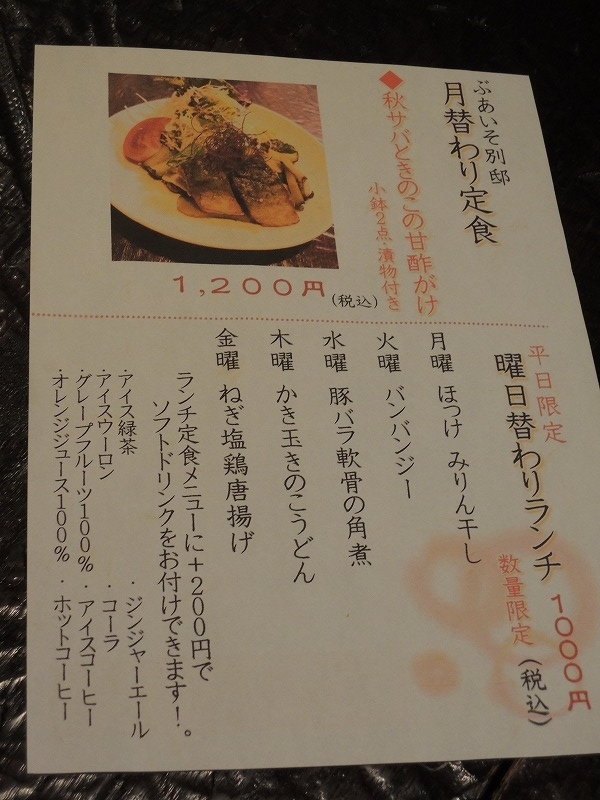 ぶあいそ別邸
月替わり定食
◆秋サバときのこの甘酢がけ
小鉢2点・漬物付き
1,200円(税込)
平日限定
曜日替わりランチ
1000円
数量限定(税込)
月曜 ほっけ みりん干し
火曜 バンバンジー
水曜 豚バラ軟骨の角煮
木曜 かき玉きのこうどん
金曜 ねぎ塩鶏唐揚げ
ランチ定食メニューに+200円で
ソフトドリンクをお付けできます!。
・アイス緑茶 ・ジンジャーエール
・アイスウーロン ・コーラ
・グレープフルーツ100% ・アイスコーヒー
・オレンジジュース100% ・ホットコーヒー